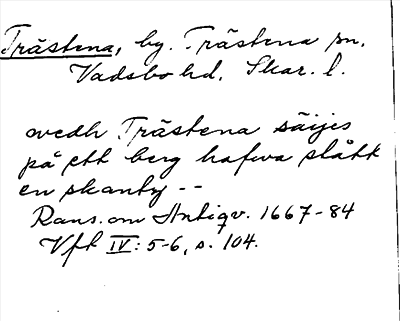 Trästena, by. Trästena sn,
Vadsbo hd, Skar. l.
wedh Trästena säijes
på ett berg hafwa slått
en skantz --
Rans. om Antiqv. 1667-84
Vft IV: 5-6, s. 104.